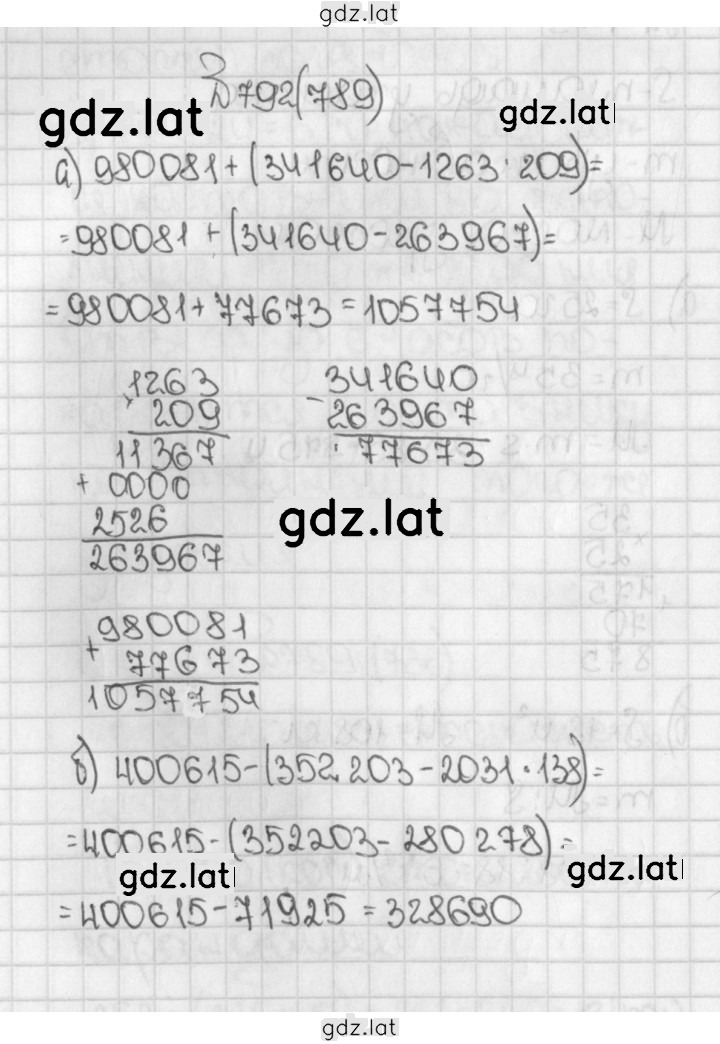 gdz.lat
№792(789)
gdz.lat
gdz.lat
а) 980081+(341640-1263·209)=
=980081+(341640-263967)=
=980081+77673=1057754
1263
× 209
11367
+ 0000
2526
263967
341640
- 263967
77673
gdz.lat
980081
+ 77673
1057754
б) 400615-(352203-2031·138)=
=400615-(352203-280278)=
gdz.lat
gdz.lat
=400615-71925=328690
gdz.lat